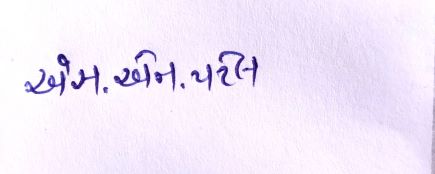 એમ. એન. પટેલ